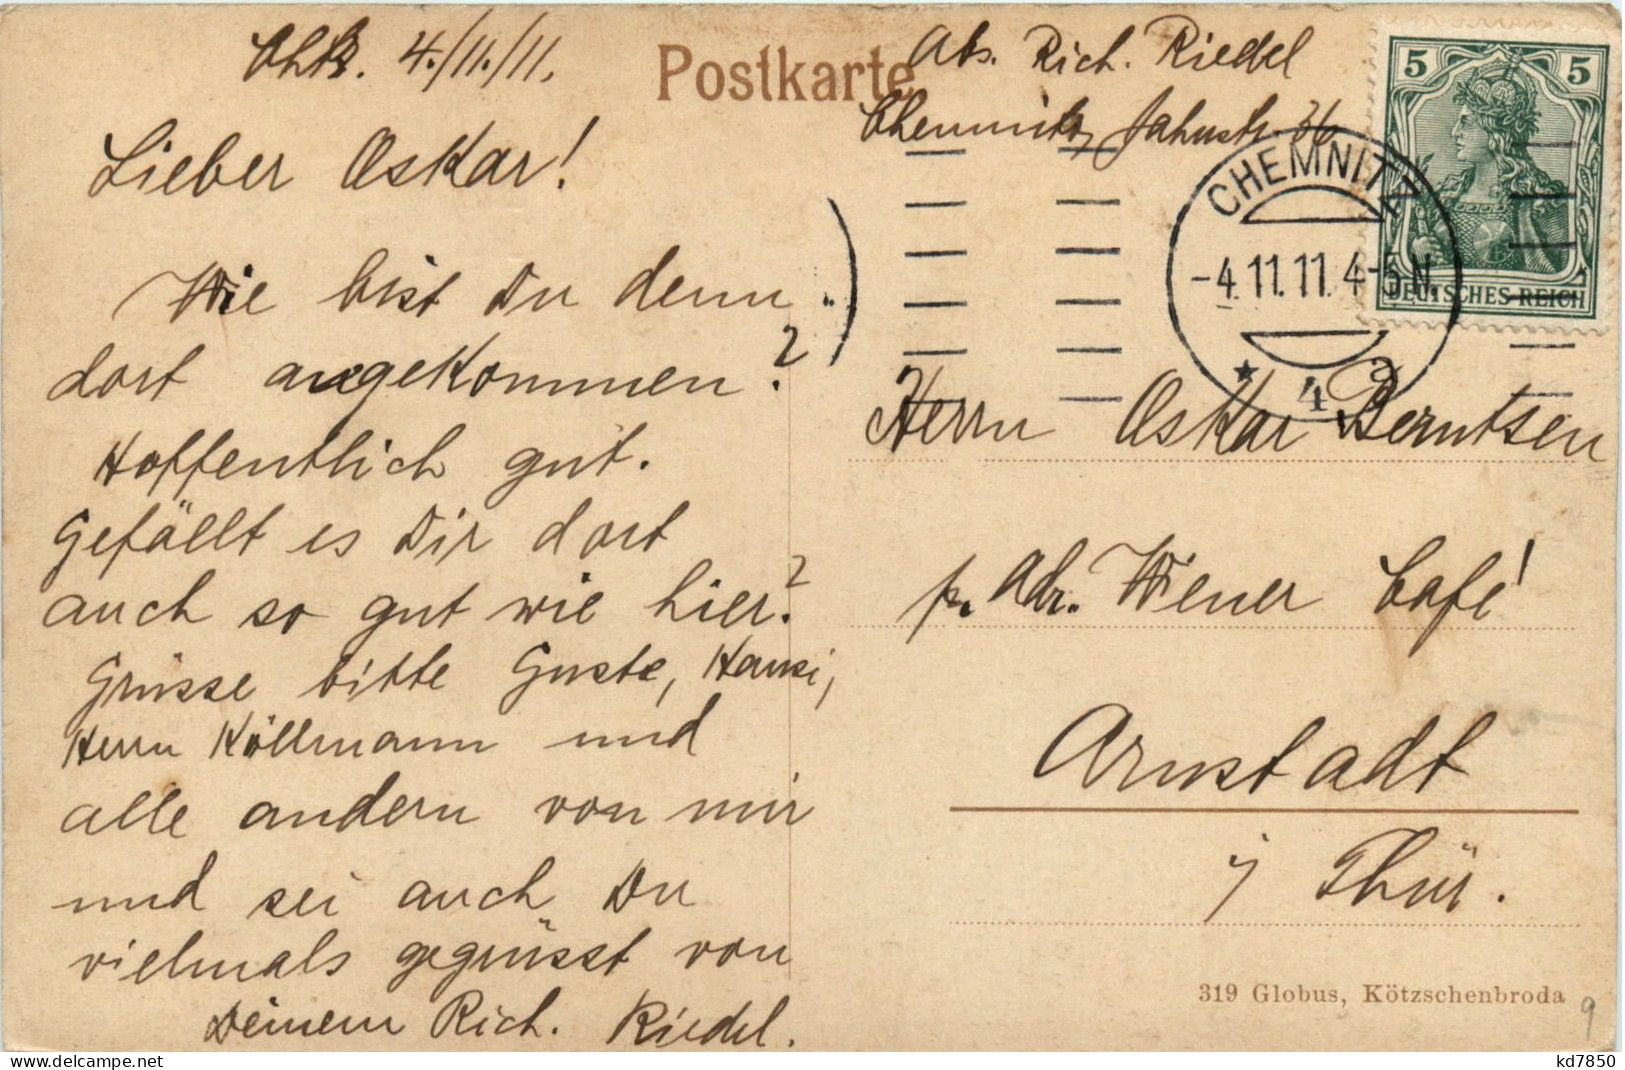 4./11./11.
Lieber Oskar!
Wie bist Du denn
dort angekommen?
Hoffentlich gut.
Gefällt es Dir dort
auch so gut wie hier?
Grüsse bitte Guste, Hansi,
Herrn Köllmann und
alle andern von mir
und sei auch Du
vielmals gegrüsst von
Deinem Rich. Riedel.
Postkarte
Abs. Rich. Riedel
Chemnitz, Jahnstr. 36
5 5
DEUTSCHES REICH
CHEMNITZ
-4.11.11. 4-5 N.
* 4 a
Herrn Oskar Berntsen
p. Adr. Wiener Café!
Arnstadt
i/ Thür.
319 Globus, Kötzschenbroda
9
http://www.delcampe.net
kd7850